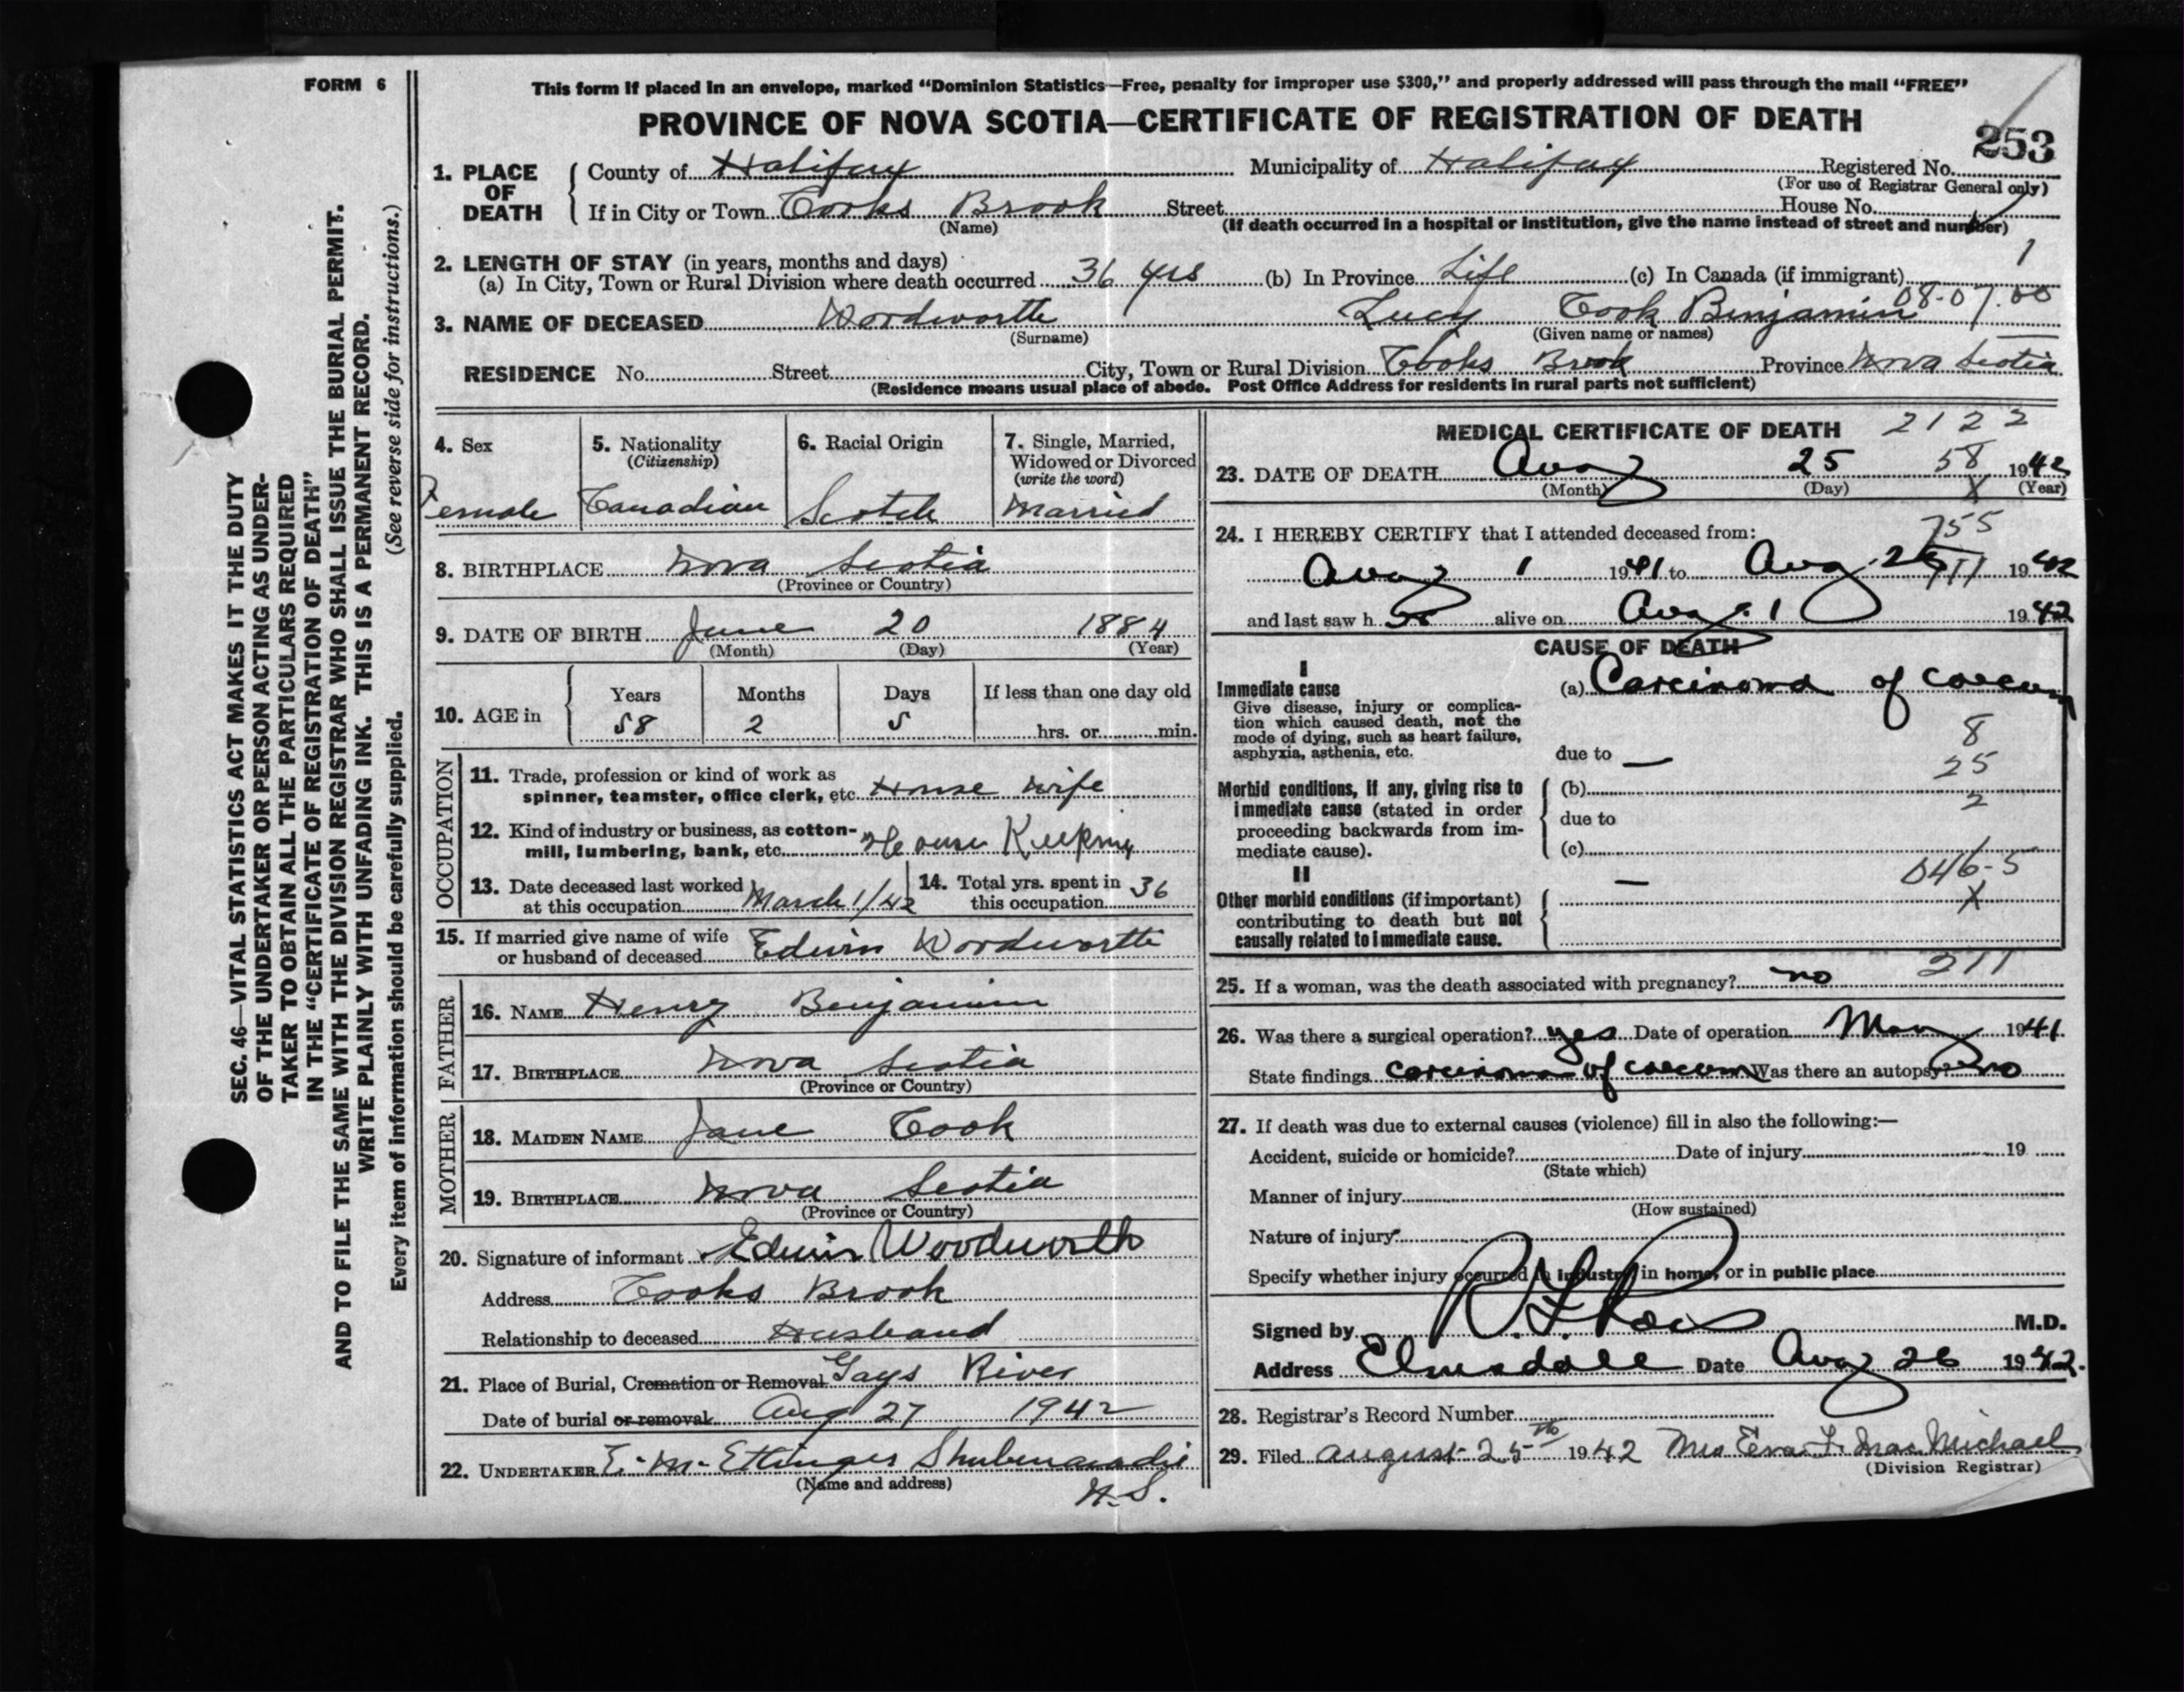 FORM 6
This form if placed in an envelope, marked “Dominion Statistics—Free, penalty for improper use $300,” and properly addressed will pass through the mail “FREE”
PROVINCE OF NOVA SCOTIA—CERTIFICATE OF REGISTRATION OF DEATH
253
1. PLACE OF DEATH { County of Halifax Municipality of Halifax Registered No.
(For use of Registrar General only)
If in City or Town Cooks Brook Street House No.
(Name) (If death occurred in a hospital or institution, give the name instead of street and number)
2. LENGTH OF STAY (in years, months and days) 1
(a) In City, Town or Rural Division where death occurred 36 yrs (b) In Province Life (c) In Canada (if immigrant)
08-07.00
3. NAME OF DECEASED Wordworth Lucy Cook Benjamin
(Surname) (Given name or names)
RESIDENCE No. Street City, Town or Rural Division Cooks Brook Province Nova Scotia
(Residence means usual place of abode. Post Office Address for residents in rural parts not sufficient)
4. Sex 5. Nationality (Citizenship) 6. Racial Origin 7. Single, Married, Widowed or Divorced (write the word)
Female Canadian Scotch Married
8. BIRTHPLACE Nova Scotia
(Province or Country)
9. DATE OF BIRTH June 20 1884
(Month) (Day) (Year)
10. AGE in { Years Months Days If less than one day old
58 2 5 hrs. or min.
OCCUPATION
11. Trade, profession or kind of work as
spinner, teamster, office clerk, etc. House wife
12. Kind of industry or business, as cotton-
mill, lumbering, bank, etc. House Keeping
13. Date deceased last worked
at this occupation March 1/42
14. Total yrs. spent in
this occupation 36
15. If married give name of wife
or husband of deceased Edwin Wordworth
FATHER
16. NAME Henry Benjamin
17. BIRTHPLACE Nova Scotia
(Province or Country)
MOTHER
18. MAIDEN NAME Jane Cook
19. BIRTHPLACE Nova Scotia
(Province or Country)
20. Signature of informant Edwin Woodworth
Address Cooks Brook
Relationship to deceased Husband
21. Place of Burial, Cremation or Removal Gays River
Date of burial or removal Aug 27 1942
22. UNDERTAKER E. M. Ettinger Shubenacadie
(Name and address) N.S.
MEDICAL CERTIFICATE OF DEATH 2122
23. DATE OF DEATH Aug 25 58 1942
(Month) (Day) X (Year)
24. I HEREBY CERTIFY that I attended deceased from: 755
Aug 1 1941 to Aug 25 1942
and last saw h er alive on Aug. 1 1942
CAUSE OF DEATH
I
Immediate cause (a) Carcinoma of coecum
Give disease, injury or complica-
tion which caused death, not the
mode of dying, such as heart failure,
asphyxia, asthenia, etc. due to —
8
25
2
Morbid conditions, if any, giving rise to (b)
immediate cause (stated in order
proceeding backwards from im- due to
mediate cause). (c)
046-5
X
II
Other morbid conditions (if important) —
contributing to death but not
causally related to immediate cause.
211
25. If a woman, was the death associated with pregnancy? no
26. Was there a surgical operation? yes Date of operation May 1941
State findings carcinoma of coecum Was there an autopsy? no
27. If death was due to external causes (violence) fill in also the following:—
Accident, suicide or homicide? Date of injury 19
(State which)
Manner of injury
(How sustained)
Nature of injury
Specify whether injury occurred in industry, in home, or in public place
Signed by M.D.
Address Elmsdale Date Aug 26 1942.
28. Registrar's Record Number
29. Filed August 25th 1942 Mrs Eva F. MacMichael
(Division Registrar)
SEC. 46—VITAL STATISTICS ACT MAKES IT THE DUTY
OF THE UNDERTAKER OR PERSON ACTING AS UNDER-
TAKER TO OBTAIN ALL THE PARTICULARS REQUIRED
IN THE “CERTIFICATE OF REGISTRATION OF DEATH”
AND TO FILE THE SAME WITH THE DIVISION REGISTRAR WHO SHALL ISSUE THE BURIAL PERMIT.
WRITE PLAINLY WITH UNFADING INK. THIS IS A PERMANENT RECORD.
Every item of information should be carefully supplied. (See reverse side for instructions.)